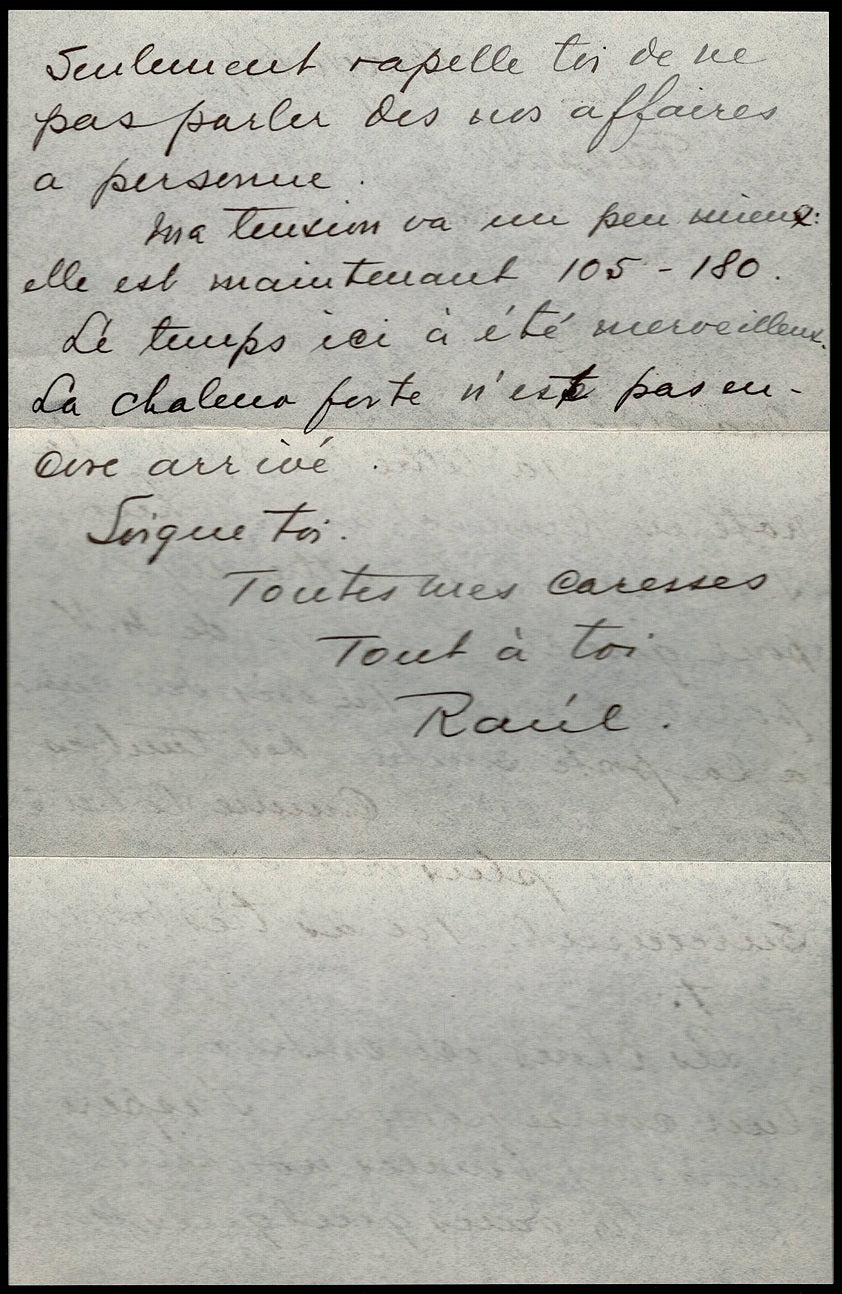 Seulement rapelle toi de ne
pas parler des nos affaires
a personne.
Ma tension va un peu mieux:
elle est maintenant 105 - 180.
Lé temps ici à été merveilleux.
La chaleur forte n'est pas en-
core arrivé.
Soigne toi.
Toutes mes caresses
Tout à toi
Raúl.